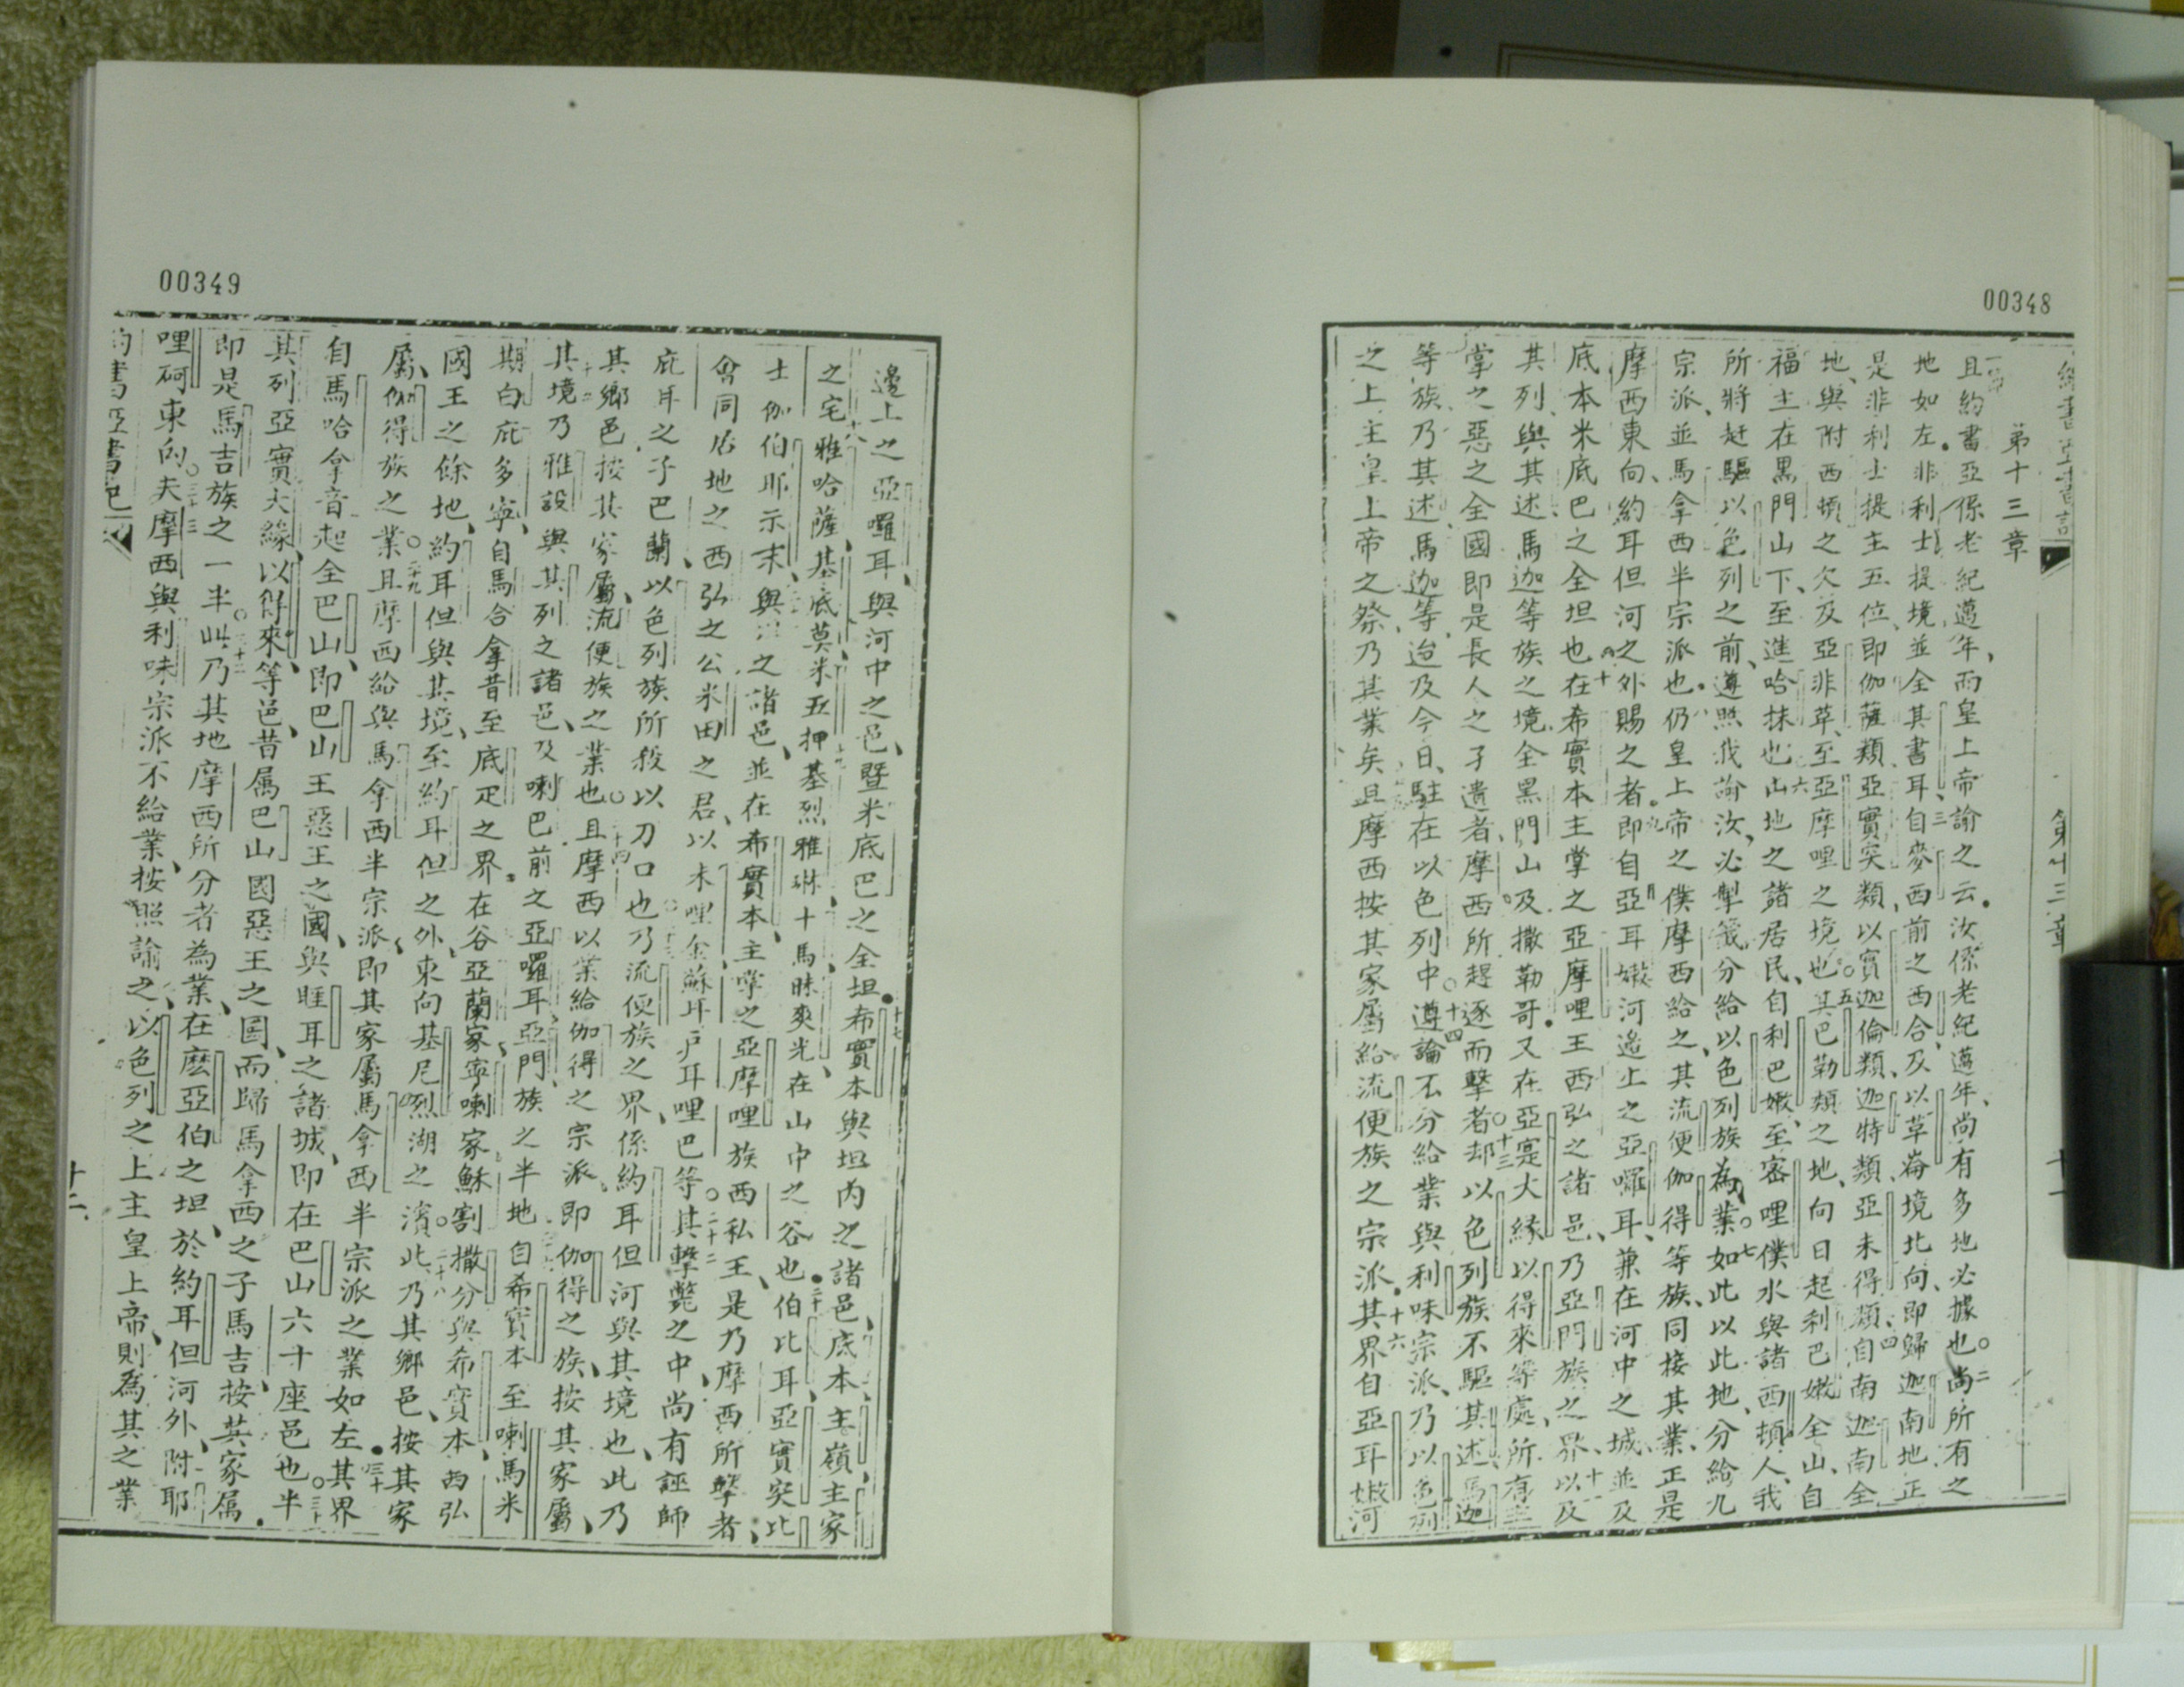 00348
第十三章
且約書亞係老紀邁年、而皇上帝諭之云、汝係老紀邁年、尚有多地必據也○二尚所有之
地如左、非利士提境、並全其書耳、三自麥西前之西合、及以革崙境北向、即歸迦南地、正
是非利士提主五位、即伽薩類、亞實突類、以實迦倫類、迦特類、亞未得類、四自南迦南全
地、與附西頓之欠及亞非革、至亞摩哩之境也○五其巴勒類之地、向日起利巴嫩全山、自
福主在黑門山下、至進哈抹也、六山地之諸居民、自利巴嫩、至密哩僕水與諸西頓人、我
所將赶驅以色列之前、遵照我諭汝、必掣籤分給以色列族為業○七如此以此地、分給九
宗派、並馬拿西半宗派也、八仍皇上帝之僕摩西給之、其流便伽得等族、同接其業、正是
摩西東向、約耳但河之外賜之者、九即自亞耳嫩河邊上之亞囉耳、兼在河中之城、並及
底本米底巴之全坦也、十在希實本主掌之亞摩哩王西弘之諸邑、乃亞門族之界、十一以及
其列、與其述、馬迦等族之境、全黑門山、及撒勒哥、又在亞寔大緣以得來等處、所有主
掌之惡之全國、即是長人之孑遺者、摩西所趕逐而擊者○十三却以色列族不驅其述、馬迦
等族、乃其述、馬迦等、迨及今日、駐在以色列中○十四遵諭不分給業與利味宗派、乃以色列
之上主皇上帝之祭、乃其業矣、且摩西按其家屬給流便族之宗派、十六其界自亞耳嫩河
00349
邊上之亞囉耳、與河中之邑、暨米底巴之全坦、十七希實本與坦內之諸邑、底本、主嶺、主家
之宅、十八雅哈薩、基底莫米五押、十九基烈雅琳十馬昧爽光在山中之谷也、二十伯比耳、亞實突比
士伽伯耶示末、與坦之諸邑、並在希實本、主掌之亞摩哩族西私王、是乃摩西所擊者、
會同居地之西弘之公米田之君、以未哩金蘇耳戶耳哩巴等○二十二其擊斃之中、尚有誣師
庇耳之子巴蘭、以色列族所殺以刀口也○乃流便族之界、係約耳但河與其境也、此乃
其鄉邑、按其家屬、流便族之業也○二十四且摩西以業給伽得之宗派、即伽得之族、按其家屬、
其境乃雅設、與其列之諸邑、及喇巴前之亞囉耳、亞門族之半地、自希實本至喇馬米
期白庇多寧、自馬合拿昔至底疋之界、在谷亞蘭家寧喇家穌割撒分與希實本西弘
國王之餘地、約耳但與其境、至約耳但之外、東向基尼烈湖之濱○二十八此乃其鄉邑、按其家
屬、伽得族之業○二十九且摩西給與馬拿西半宗派、即其家屬馬拿西半宗派之業如左、三十其界
自馬哈拿音起全巴山、即巴山王惡王之國、與睚耳之諸城、即在巴山六十座邑也○三十一半
其列亞實大緣、以得來等邑、昔屬巴山國惡王之國、而歸馬拿西之子馬吉、按其家屬、
即是馬吉族之一半○三十二此乃其地摩西所分者為業、在麽亞伯之坦、於約耳但河外、附耶
哩砢東向○三十三夫摩西與利味宗派不給業、按照諭之、以色列之上主皇上帝、則為其之業
約書亞書
十二